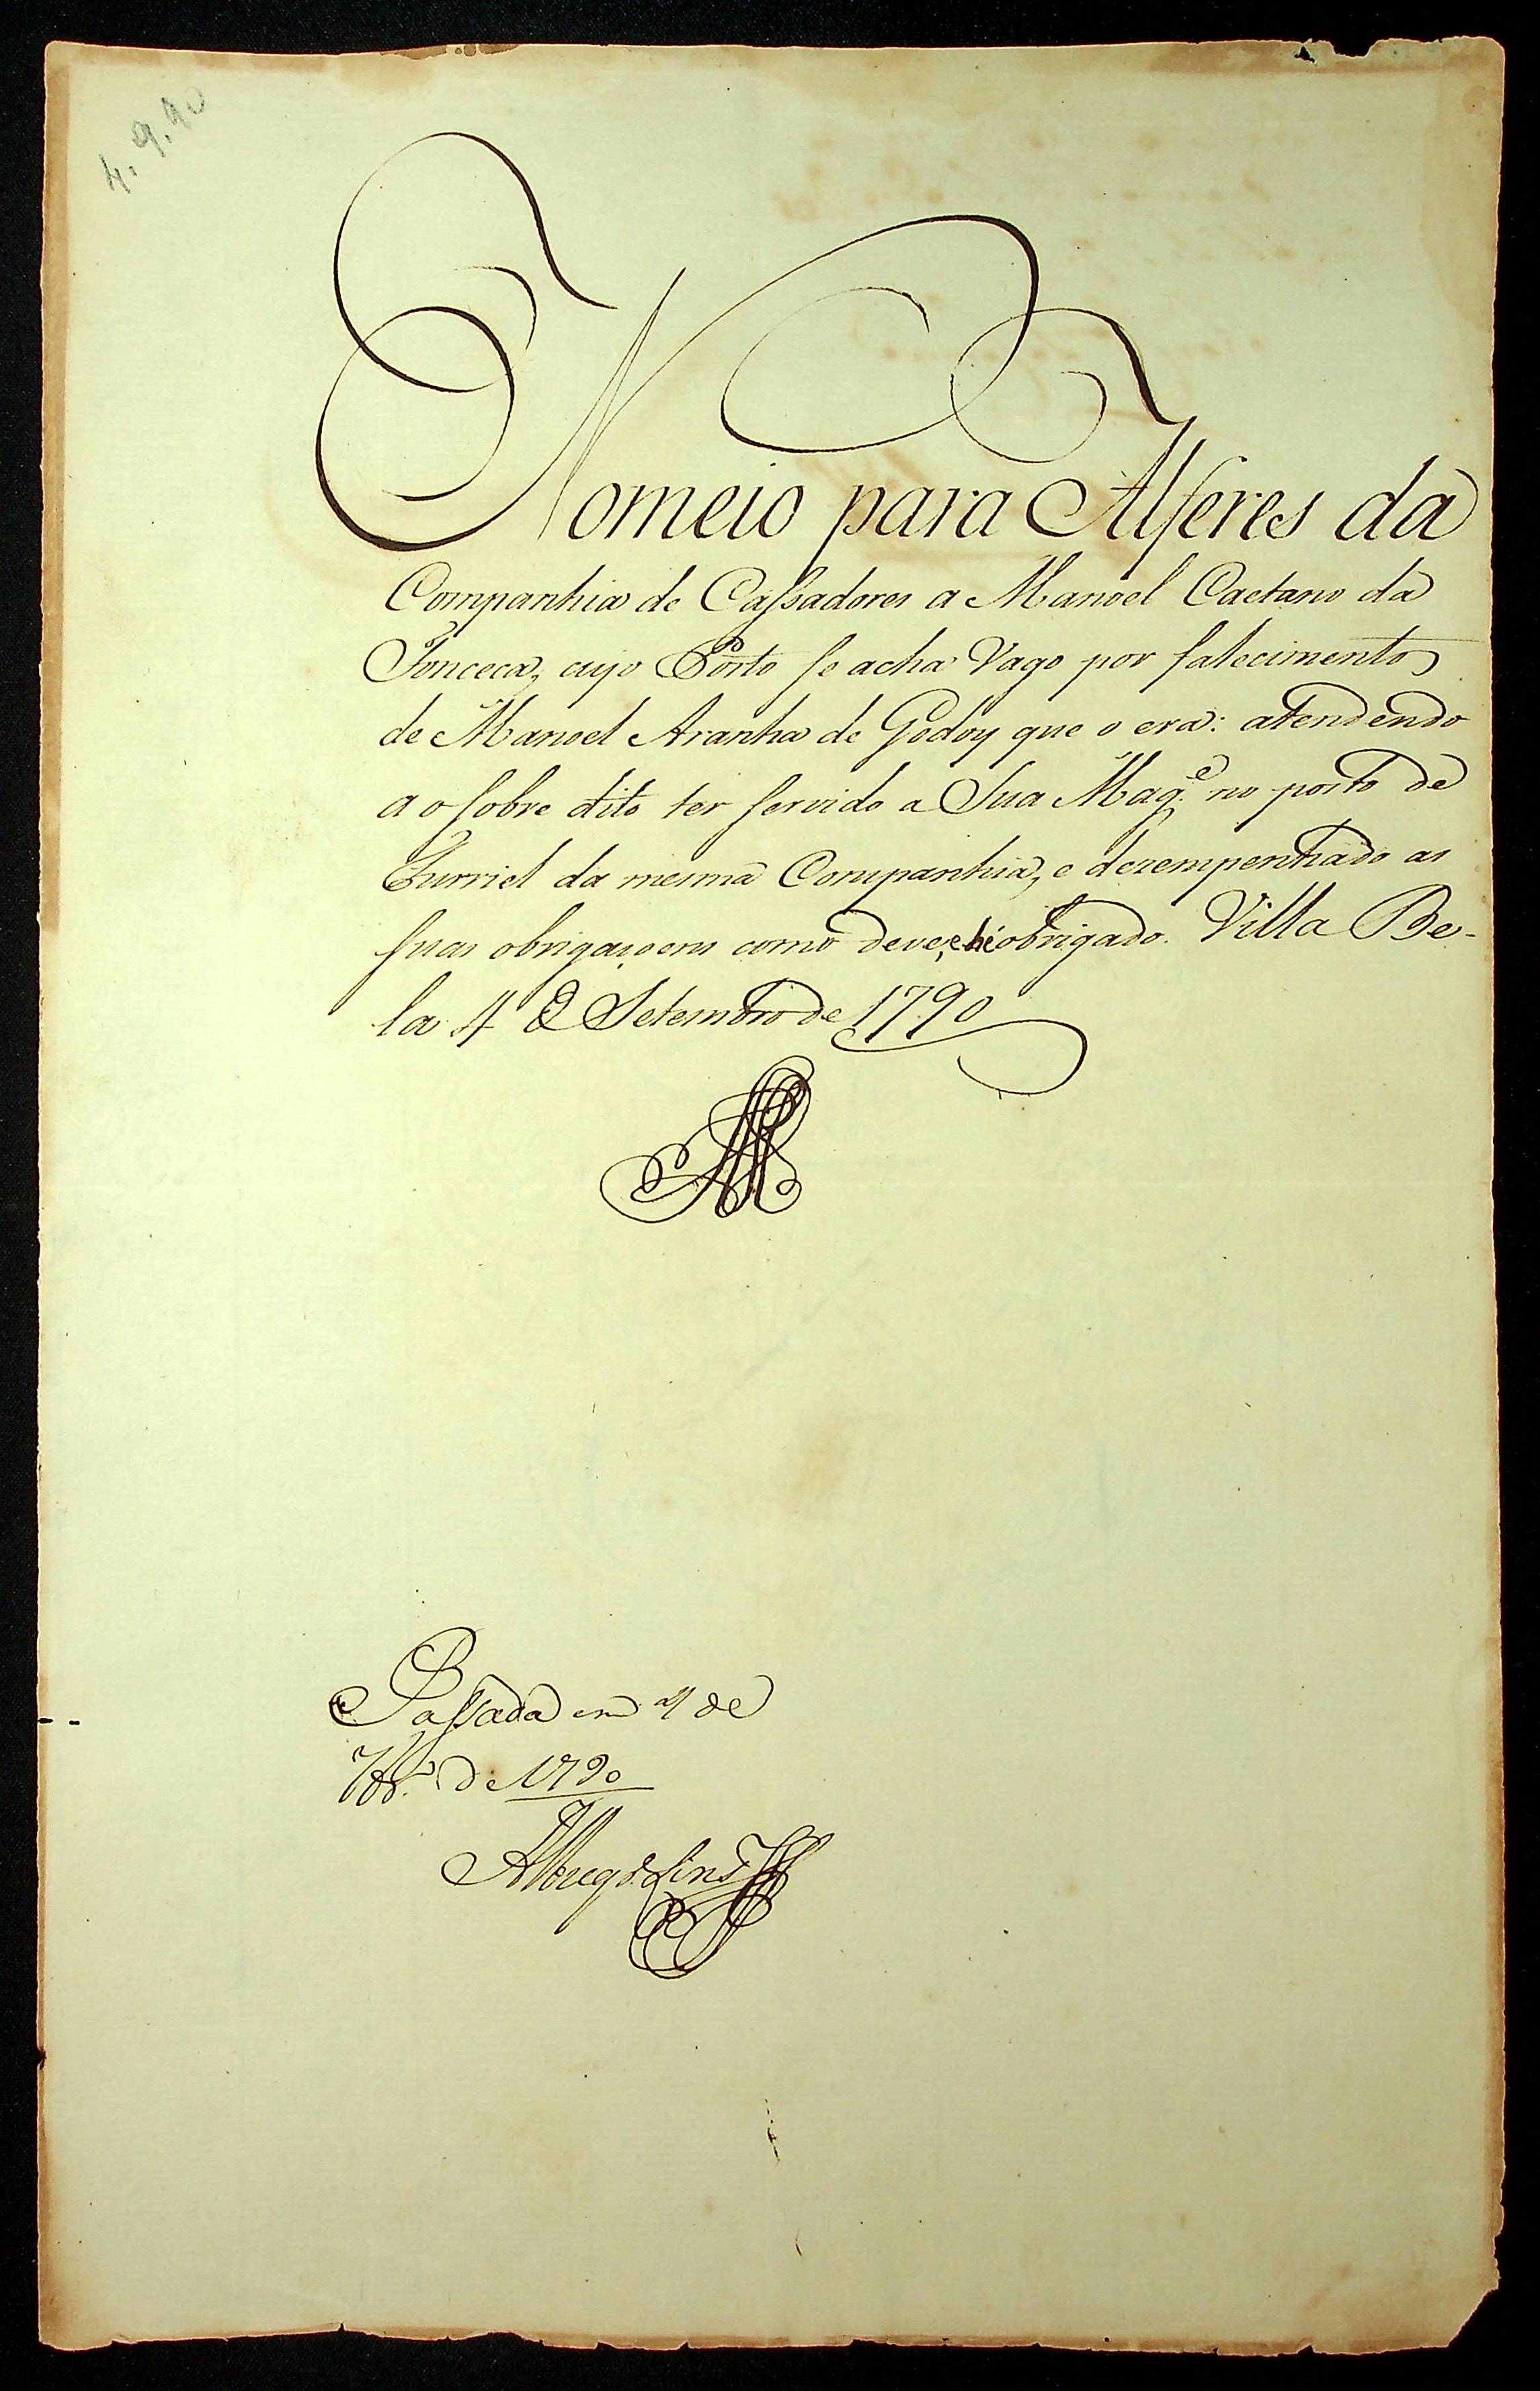 4.9.90
Nomeio para Alferes da
Companhia de Cassadores a Manoel Caetano da
Fonceca, cujo Posto se acha Vago por falecimento
de Manoel Aranha de Godoy que o era: atendendo
ao sobre dito ter servido a Sua Mag.e no posto de
Furriel da mesma Companhia, e dezempenhado as
suas obrigaçoens como deve, e hé obrigado. Villa Be-
la 4 de Setembro de 1790
Passada em 4 de
7br.o de 1790